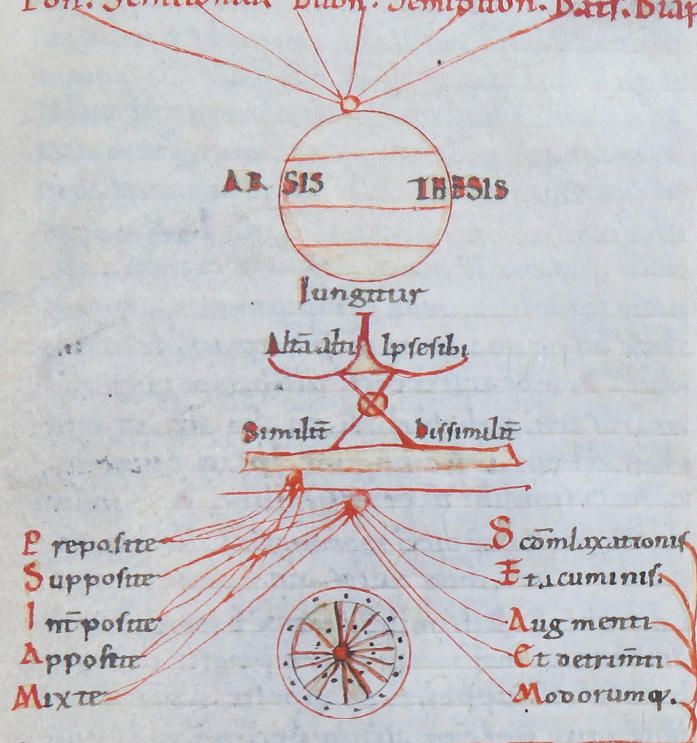 Ton. Semitonius Duon. Semiditon. Diat. Diap
ARSIS THESIS
Iungitur
Altāalti Ipsesibi
Similit̄ Dissimilit̄
Preposite
Supposite
Int̄posite
Apposite
Mixte
Scōmlaxationis
Etacuminis.
Augmenti
Et detrim̄ti
Modorumq.